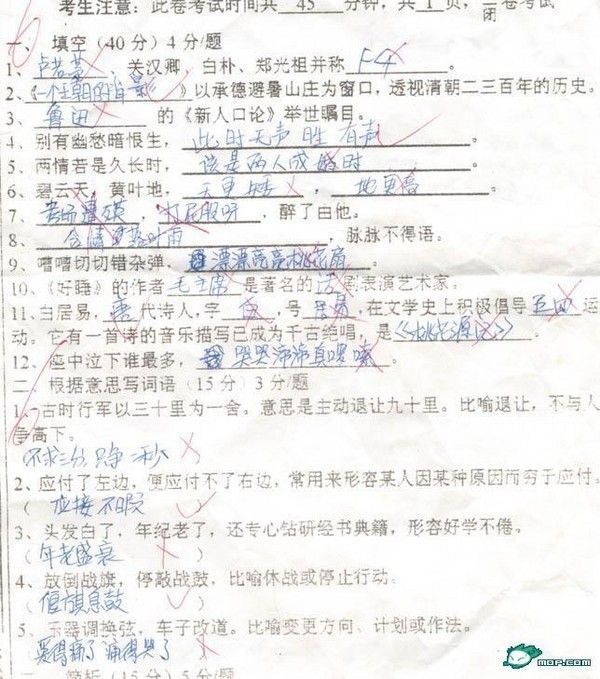 考生注意：此卷考试时间共 45 分钟，共 1 页，闭卷考试
一、填空（40分）4分/题
1、卢若蒙、关汉卿，白朴、郑光祖并称 F4 。
2、《一个王朝的背影》以承德避暑山庄为窗口，透视清朝二三百年的历史。
3、鲁迅 的《新人口论》举世瞩目。
4、别有幽愁暗恨生，此时无声胜有声。
5、两情若是久长时，该是两人成婚时
6、碧云天，黄叶地，天更矮，地更高
7、老师遭殃，打屁股呀，醉了由他。
8、含情，脉脉不得语。
9、嘈嘈切切错杂弹，漂漂亮亮桃花扇。
10、《好睡》的作者毛主席是著名的话剧表演艺术家。
11、白居易，唐代诗人，字白，号居易，在文学史上积极倡导五四运
动。它有一首诗的音乐描写已成为千古绝唱，是《桃花源记》
12、座中泣下谁最多，哭哭沸沸真啰嗦。
二、根据意思写词语（15分）3分/题
1、古时行军以三十里为一舍。意思是主动退让九十里。比喻退让，不与人
争高下。
（不求三分只争一秒
2、应付了左边，便应付不了右边，常用来形容某人因某种原因而穷于应付。
（应接不暇
3、头发白了，年纪老了，还专心钻研经书典籍，形容好学不倦。
（年老盛衰）
4、放倒战旗，停敲战鼓，比喻休战或停止行动。
（偃旗息鼓）
5、乐器调换弦，车子改道。比喻变更方向、计划或作法。
爱得痛了 痛得哭了
简析（15分）5分/题
MOP.COM